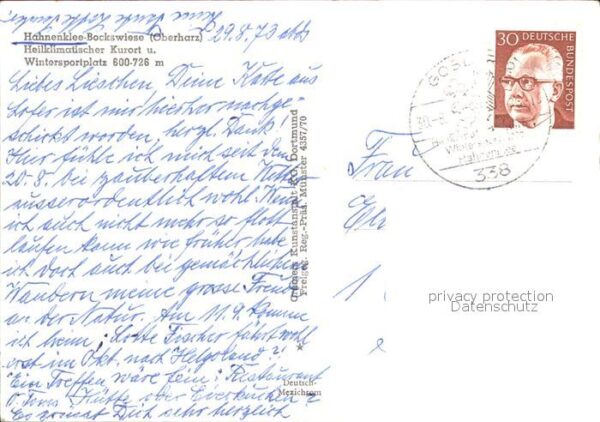 29.8.73 abds
Hahnenklee-Bockswiese (Oberharz)
Heilklimatischer Kurort u.
Wintersportplatz 600-726 m
Liebes Lieschen, Deine Karte aus
Lofer ist mir hierher nachge-
schickt worden, herzl. Dank!
Hier fühle ich mich seit dem
20.8. bei zauberhaftem
ausserordentlich wohl. Wenn
ich auch nicht mehr so flott
laufen kann wie früher, habe
ich doch auch bei gemächlichem
Wandern meine grosse Freude
an der Natur. Am 11.9. komme
ich heim. Lotte Fischer fährt wohl
erst im Okt. nach Helgoland?!
Ein Treffen wäre fein! Restaurant
O. Toms Hütte oder
Es grüsst Dich sehr herzlich
Cramers Kunstanstalt KG, Dortmund
Freigeg. Reg.-Präs. Münster 4357/70
30 DEUTSCHE
BUNDESPOST
GOSL
338
Frau
1
privacy protection
Datenschutz